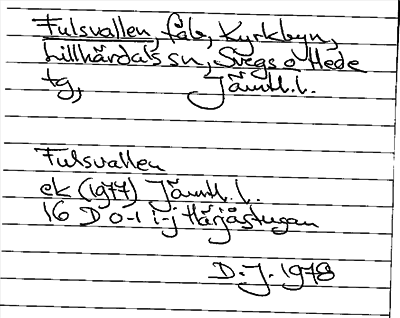 Fulsvallen, fäb, Kyrkbyn,
Lillhärdals sn, Svegs o Hede
tg, Jämtl.l.
Fulsvallen
ek (1977) Jämtl.l.
16 D 0-1 i-j Härjåstugan
D.J. 1978